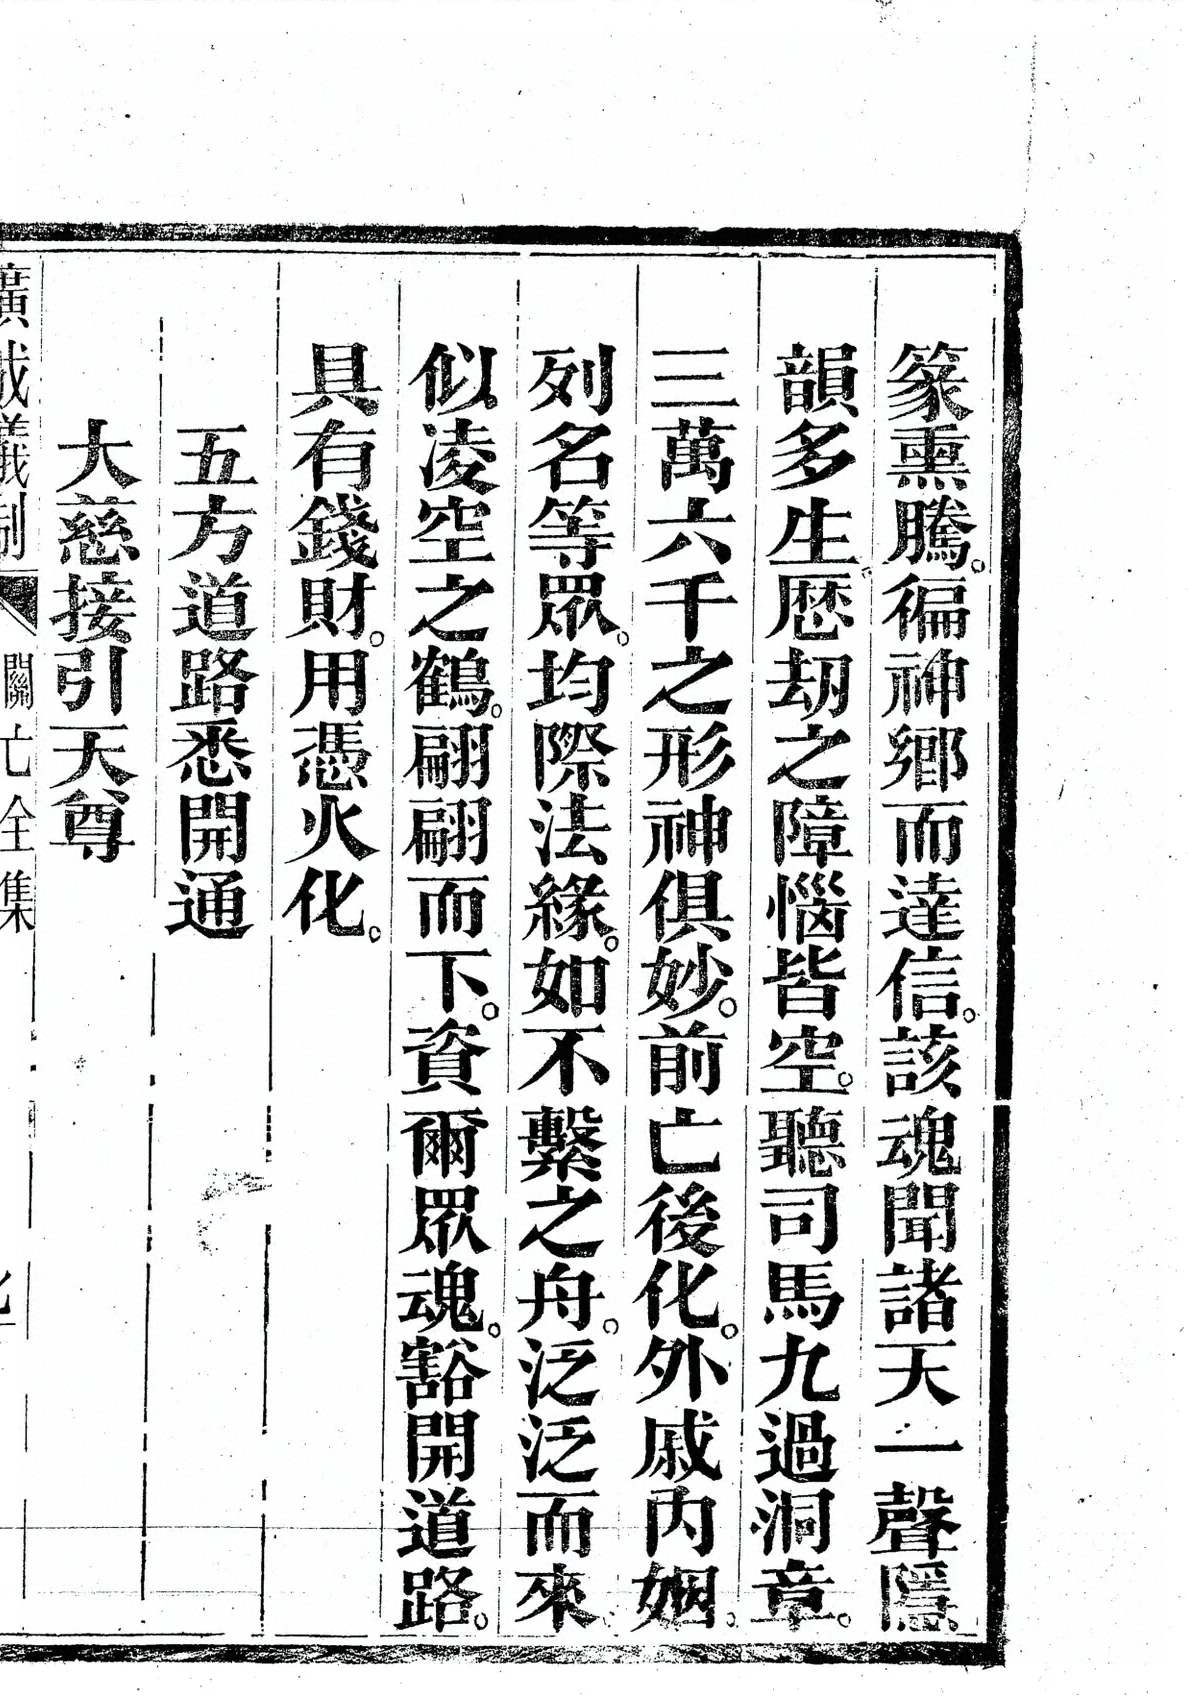 篆熏騰。徧神鄉而達信。該魂聞諸天一聲隱
韻多生。歷劫之障惱皆空。聽司馬九過洞章。
三萬六千之形神俱妙。前亡後化。外戚內姻。
列名等眾。均際法緣。如不繫之舟。泛泛而來。
似凌空之鶴。翩翩而下。資爾眾魂。豁開道路。
具有錢財。用憑火化。
五方道路悉開通
大慈接引天尊
廣成儀制 關亡全集